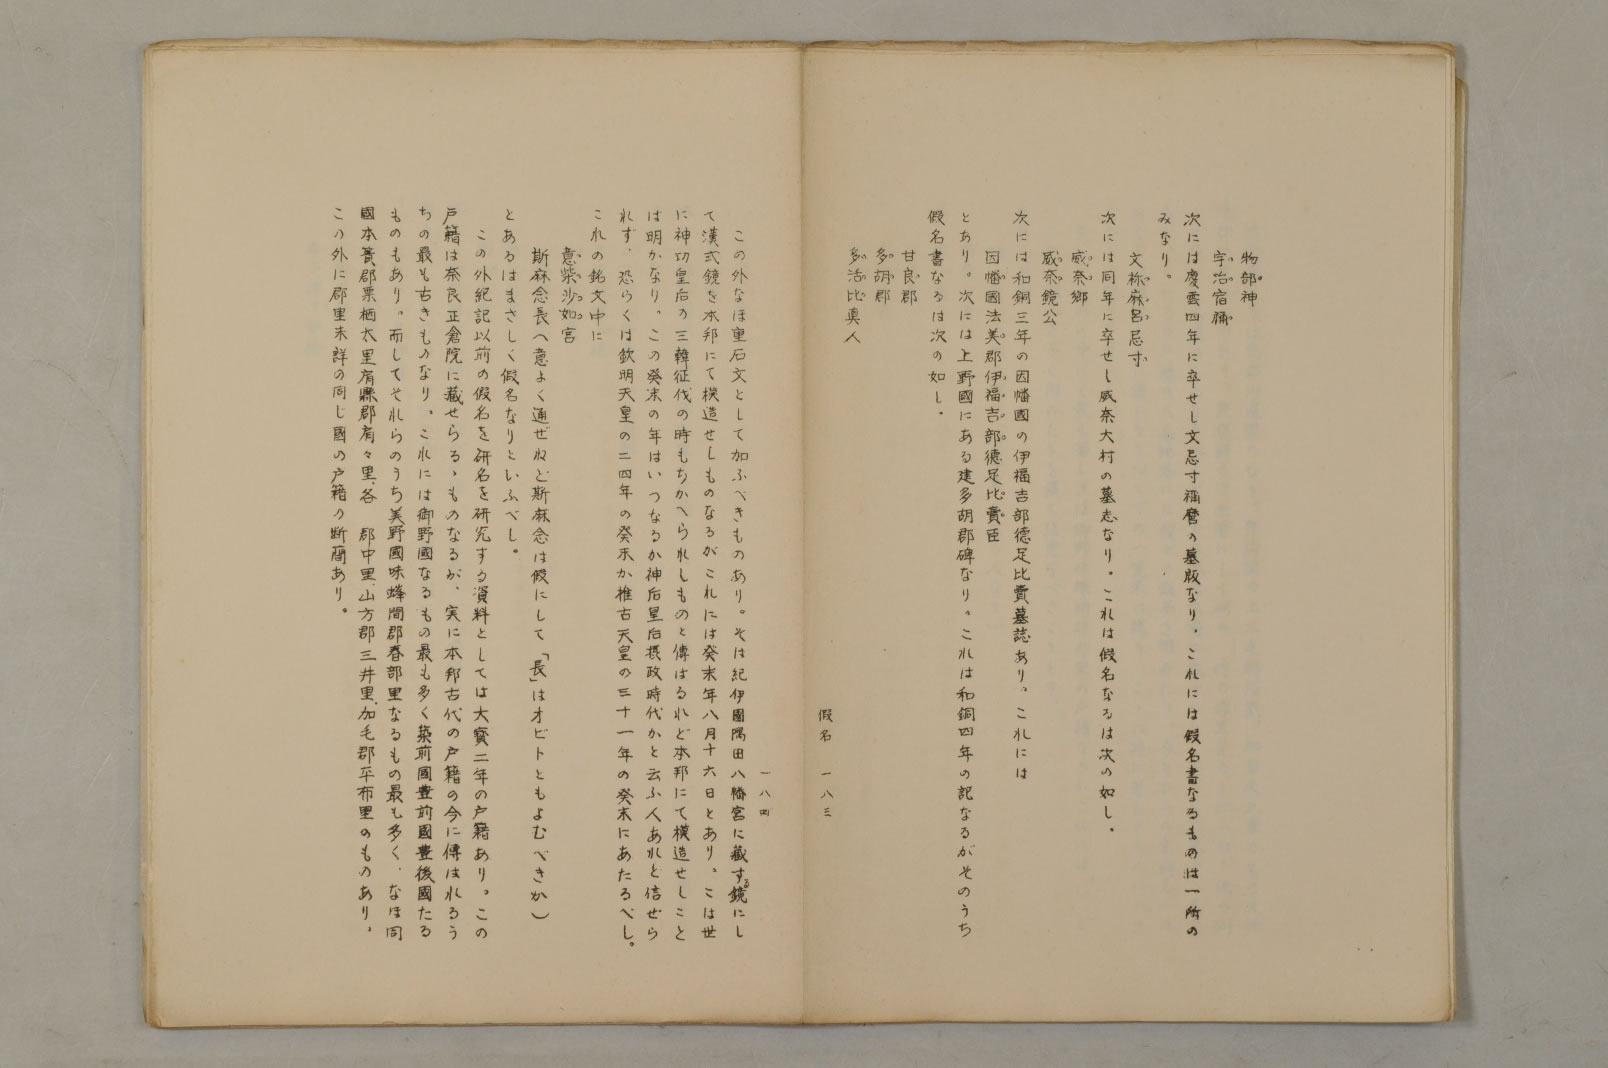 物部神
宇治宿禰
次には慶雲四年に卒せし文忌寸禰麿の墓版なり。これには假名書なるものは一所の
みなり。
文祢麻呂忌寸
次には同年に卒せし威奈大村の墓志なり。これは假名なるは次の如し。
威奈郷
威奈鏡公
次には和銅三年の因幡國の伊福吉部德足比賣墓誌あり。これには
因幡國法美郡伊福吉部德足比賣臣
とあり。次には上野國にある建多胡郡碑なり。これは和銅四年の記なるがそのうち
假名書なるは次の如し。
甘良郡
多胡郡
多治比真人
假名 一八三
一八四
この外なほ重石文として加ふべきものあり。そは紀伊國隅田八幡宮に藏する鏡にし
て漢式鏡を本邦にて模造せしものなるがこれには癸未年八月十六日とあり。こは世
に神功皇后の三韓征伐の時もちかへられしものと傳はるれど本邦にて模造せしこと
は明かなり。この癸未の年はいつなるか神后皇后摂政時代かと云ふ人あれど信ぜら
れず、恐らくは欽明天皇の二四年の癸未か推古天皇の三十一年の癸未にあたるべし。
これの銘文中に
意柴沙加宮
斯麻念長へ意よく通ぜねど斯麻念は假にして「長」はオビトともよむべきか）
とあるはまさしく假名なりといふべし。
この外紀記以前の假名を研名を研究する資料としては大寶二年の戸籍あり。この
戸籍は奈良正倉院に藏せらるゝものなるが、実に本邦古代の戸籍の今に傳はれるう
ちの最も古きものなり。これには御野國なるもの最も多く築前國豊前國豊後國たる
ものもあり。而してそれらのうち美野國味蜂間郡春部里なるもの最も多く、なほ同
國本簀郡栗栖太里肩縣郡肩々里、各 郡中里、山方郡三井里、加毛郡平布里のものあり、
この外に郡里未詳の同じ國の戸籍の断簡あり。